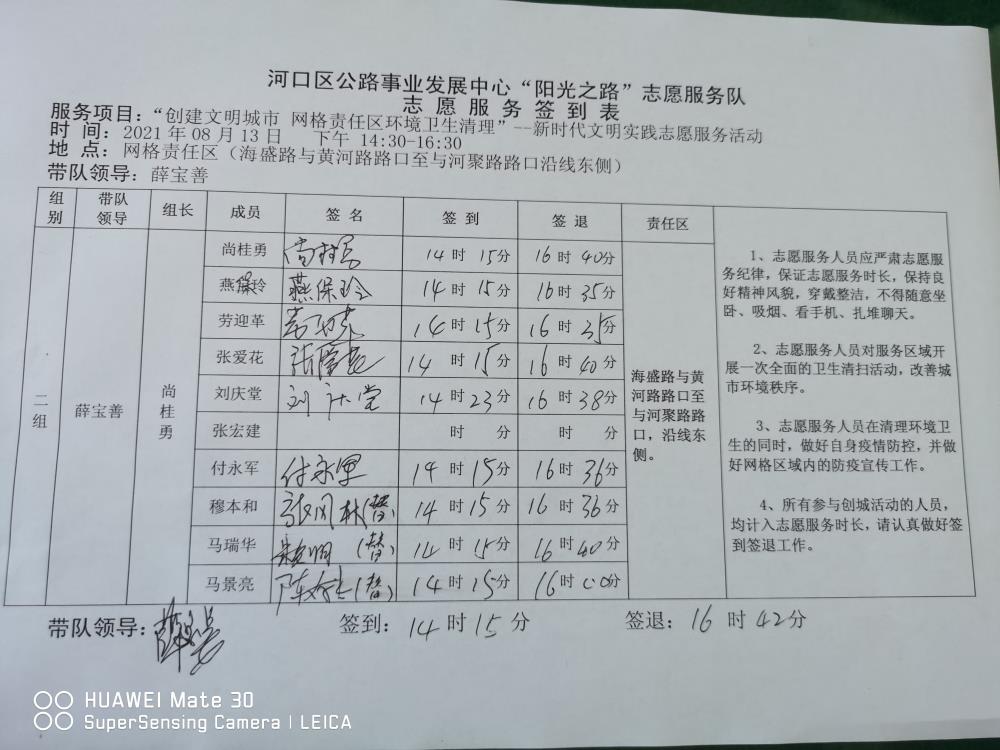 河口区公路事业发展中心“阳光之路”志愿服务队
志愿服务签到表
服务项目：“创建文明城市 网格责任区环境卫生清理”--新时代文明实践志愿服务活动
时 间：2021 年 08 月 13 日 下午 14:30-16:30
地 点：网格责任区（海盛路与黄河路路口至与河聚路路口沿线东侧）
带队领导：薛宝善
组别 带队领导 组长 成员 签 名 签 到 签 退 责任区
二组 薛宝善 尚桂勇
尚桂勇 尚桂勇 14 时 15分 16 时 40分
燕保玲 燕保玲 14 时 15分 16 时 35分
劳迎革 14 时 15分 16 时 35分
张爱花 张爱花 14 时 15分 16 时 40分
刘庆堂 刘庆堂 14 时 23分 16 时 38分
张宏建 时 分 时 分
付永军 付永军 14 时 15分 16 时 36分
穆本和 (替) 14 时 15分 16 时 36分
马瑞华 (替) 14 时 15分 16 时 40分
马景亮 (替) 14 时 15分 16时 分
海盛路与黄
河路路口至
与河聚路路
口，沿线东
侧。
1、志愿服务人员应严肃志愿服
务纪律，保证志愿服务时长，保持良
好精神风貌，穿戴整洁，不得随意坐
卧、吸烟、看手机、扎堆聊天。
2、志愿服务人员对服务区域开
展一次全面的卫生清扫活动，改善城
市环境秩序。
3、志愿服务人员在清理环境卫
生的同时，做好自身疫情防控，并做
好网格区域内的防疫宣传工作。
4、所有参与创城活动的人员，
均计入志愿服务时长，请认真做好签
到签退工作。
带队领导： 签到：14 时 15 分 签退：16 时 42分
HUAWEI Mate 30
SuperSensing Camera | LEICA